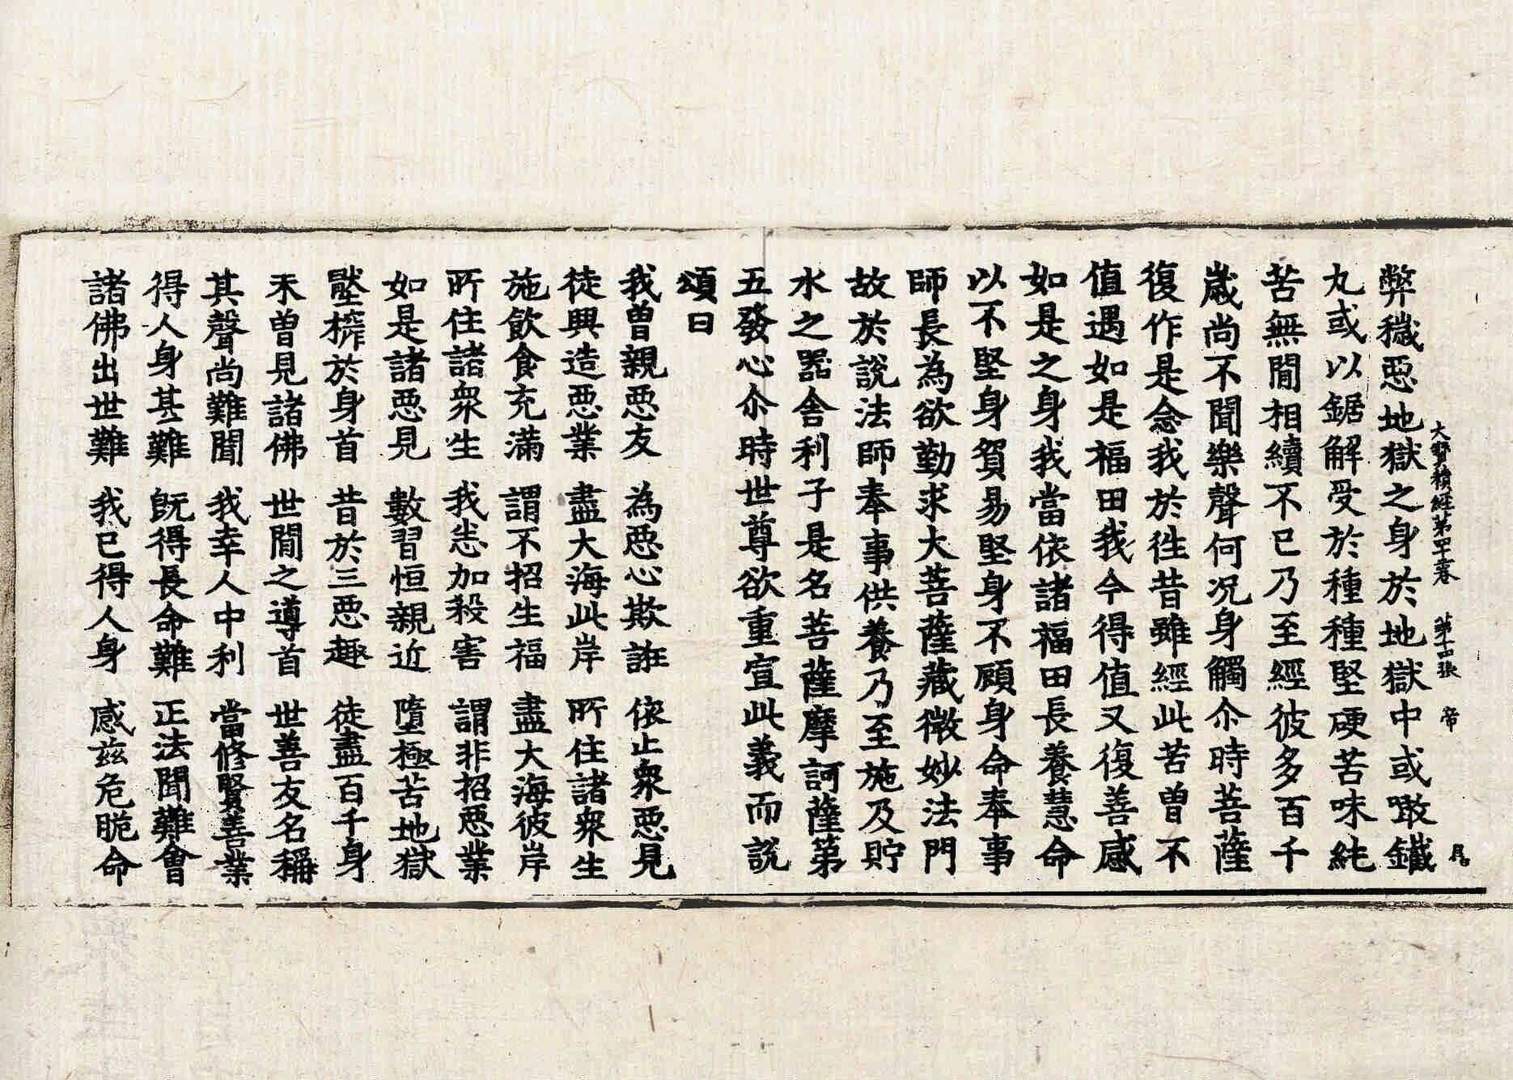 大寶積經第四十卷 第十四張 帝
弊穢惡地獄之身於地獄中或噉鐵
丸或以鋸解受於種種堅硬苦味純
苦無間相續不已乃至經彼多百千
歲尚不聞樂聲何況身觸尒時菩薩
復作是念我於徃昔雖經此苦曾不
值遇如是福田我今得值又復善感
如是之身我當依諸福田長養慧命
以不堅身貿易堅身不顧身命奉事
師長為欲勤求大菩薩藏微妙法門
故於說法師奉事供養乃至施及貯
水之器舍利子是名菩薩摩訶薩第
五發心尒時世尊欲重宣此義而說
頌曰
我曾親惡友 為惡心欺誑 依止衆惡見
徒興造惡業 盡大海此岸 所住諸衆生
施飲食充滿 謂不招生福 盡大海彼岸
所住諸衆生 我恙加殺害 謂非招惡業
如是諸惡見 數習恒親近 墮極苦地獄
壓搾於身首 昔於三惡趣 徒盡百千身
未曾見諸佛 世間之導首 世善友名稱
其聲尚難聞 我幸人中利 當修賢善業
得人身甚難 旣得長命難 正法聞難會
諸佛出世難 我已得人身 感茲危脆命